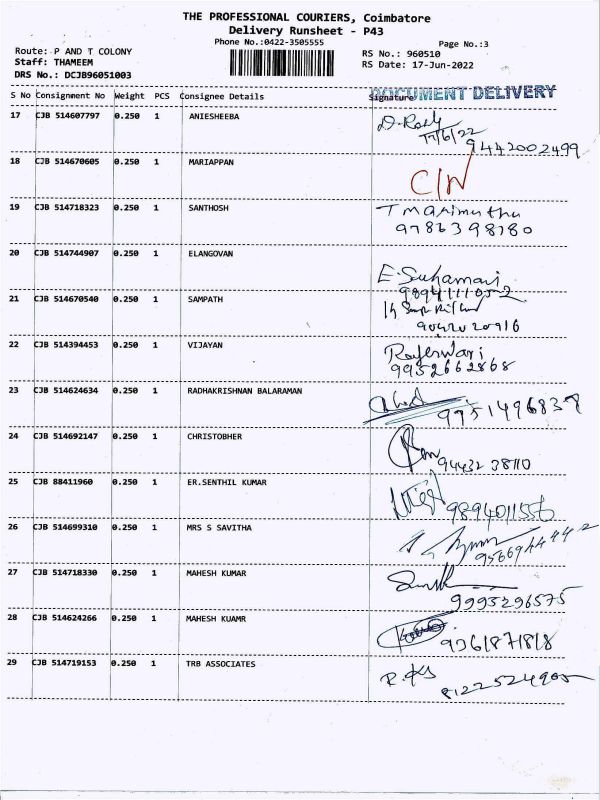 THE PROFESSIONAL COURIERS, Coimbatore
Delivery Runsheet - P43
Phone No.:0422-3505555
Page No.:3
Route: P AND T COLONY
RS No.: 960510
Staff: THAMEEM
RS Date: 17-Jun-2022
DRS No.: DCJB96051003
S No Consignment No Weight PCS Consignee Details Signature DOCUMENT DELIVERY
17 CJB 514607797 0.250 1 ANIESHEEBA
17/6/22
9442002499
18 CJB 514670605 0.250 1 MARIAPPAN
C/N
19 CJB 514718323 0.250 1 SANTHOSH T Marimuthu
9786398780
20 CJB 514744907 0.250 1 ELANGOVAN
21 CJB 514670540 0.250 1 SAMPATH
22 CJB 514394453 0.250 1 VIJAYAN Rajeswari
9952662868
23 CJB 514624634 0.250 1 RADHAKRISHNAN BALARAMAN
9951496838
24 CJB 514692147 0.250 1 CHRISTOBHER
94432 38110
25 CJB 88411960 0.250 1 ER.SENTHIL KUMAR
9894011556
26 CJB 514699310 0.250 1 MRS S SAVITHA
27 CJB 514718330 0.250 1 MAHESH KUMAR
9995296575
28 CJB 514624266 0.250 1 MAHESH KUAMR
9361871818
29 CJB 514719153 0.250 1 TRB ASSOCIATES
8122524905